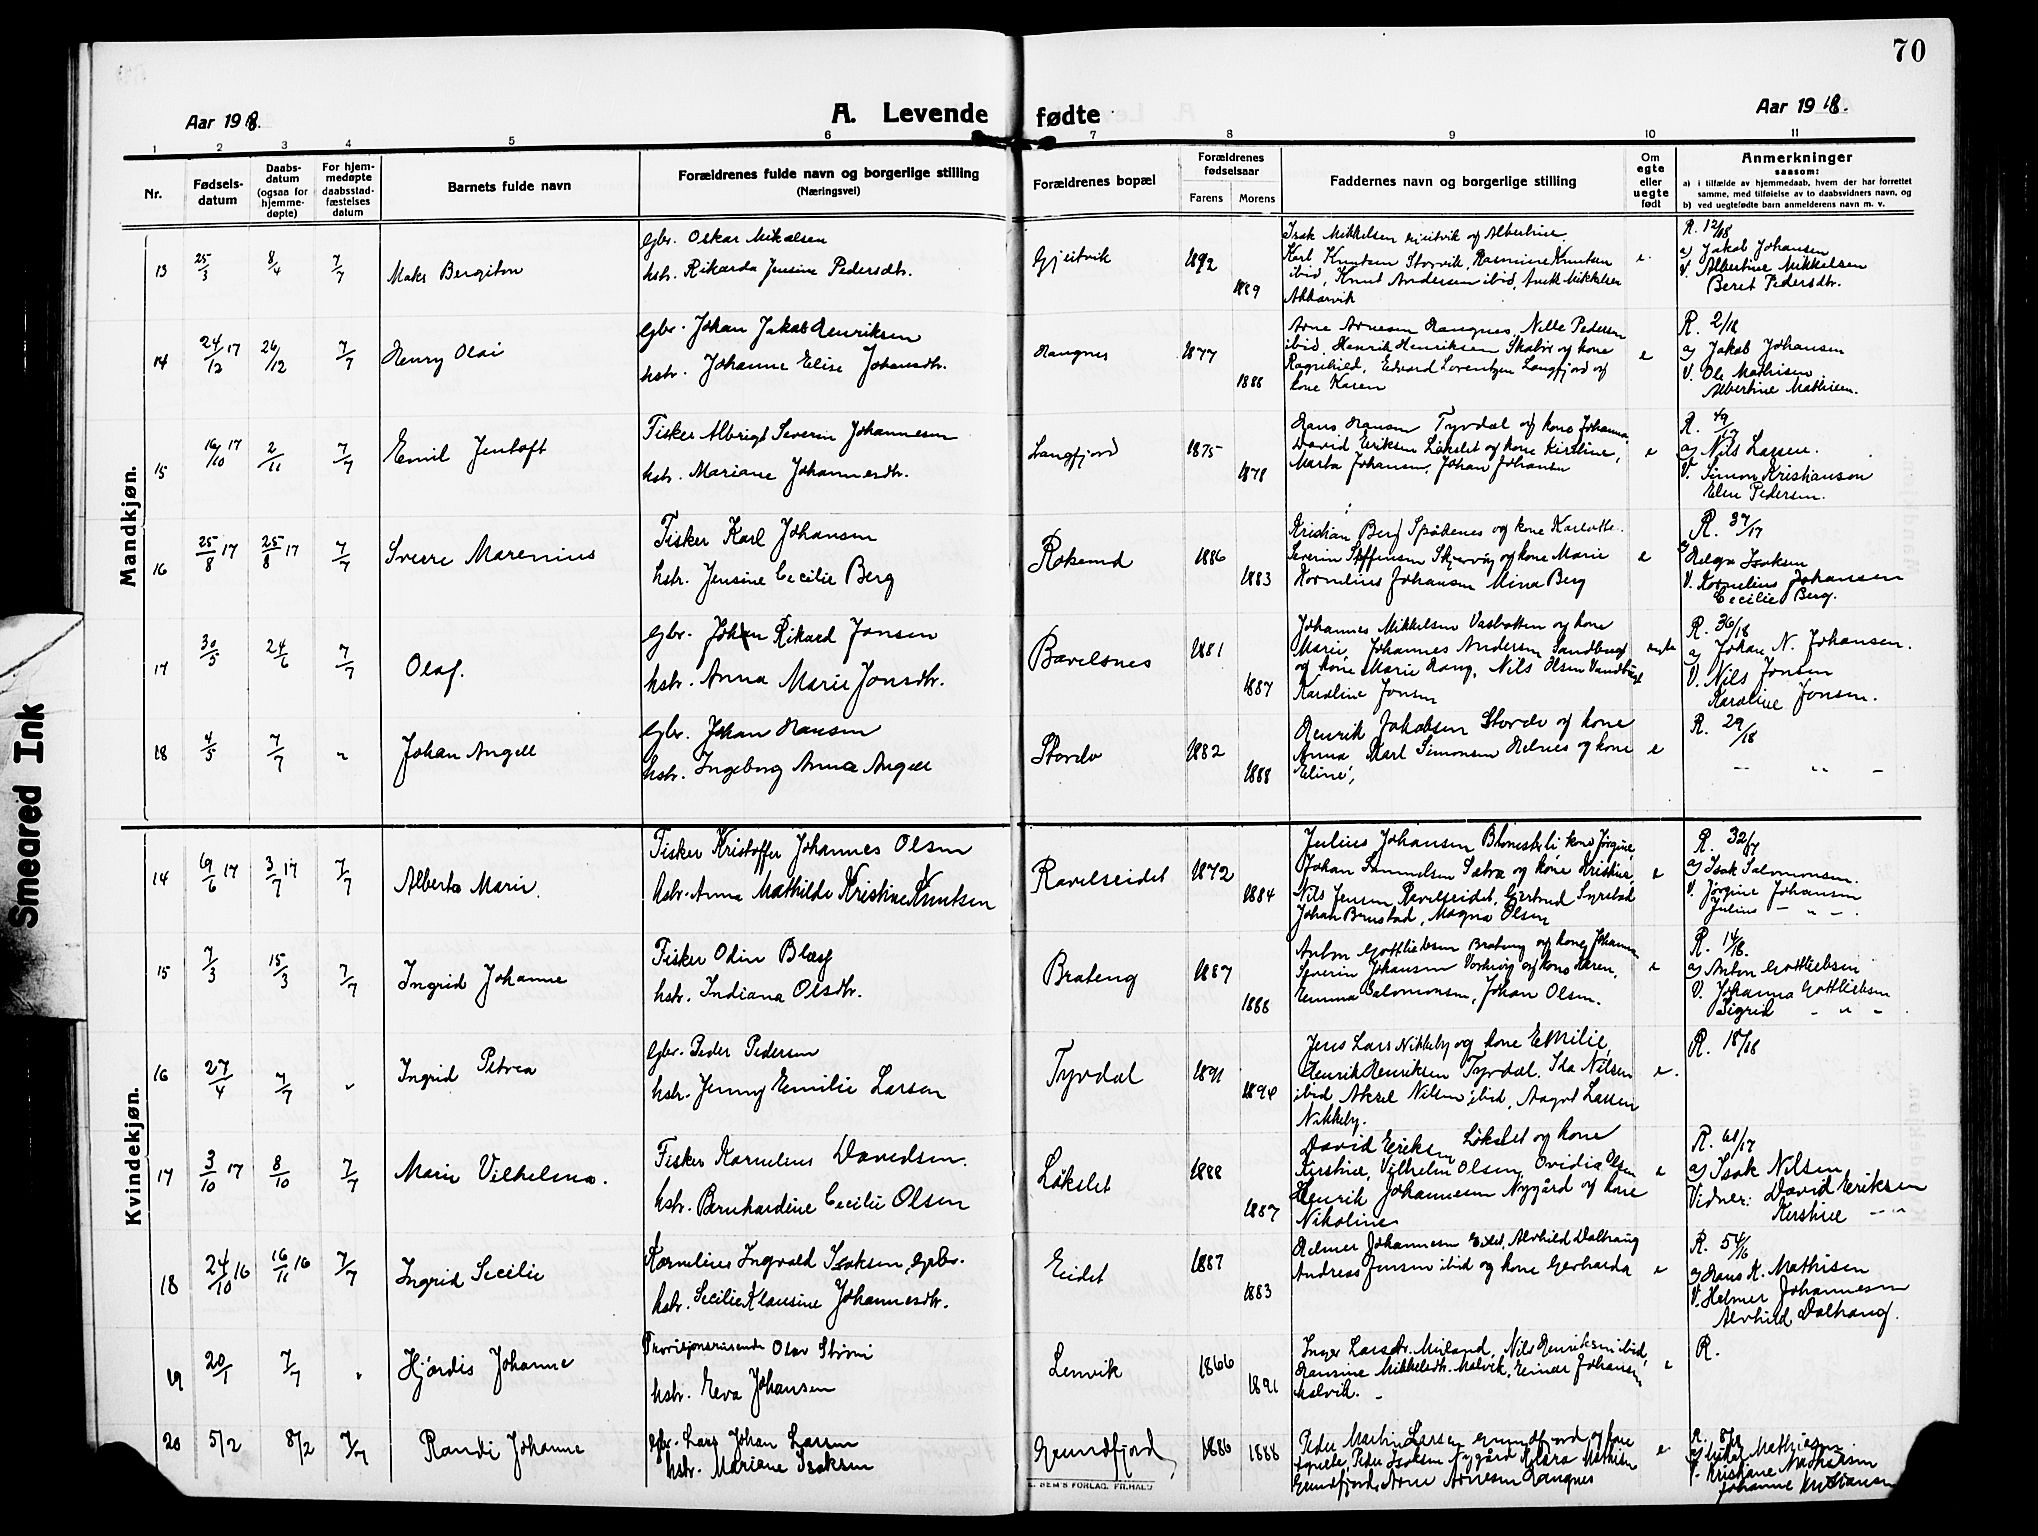 70
Aar 1918.
A. Levende fødte
Aar 1918.
1 2 3 4 5 6 7 8 9 10 11
Nr.
Fødsels-
datum
Daabs-
datum
(ogsaa for
hjemme-
døpte)
For hjem-
medøpte
daabsstad-
fæstelses
datum
Barnets fulde navn
Forældrenes fulde navn og borgerlige stilling
(Næringsvei)
Forældrenes bopæl
Forældrenes
fødselsaar
Farens Morens
Faddernes navn og borgerlige stilling
Om
egte
eller
uegte
født
Anmerkninger
saasom:
a) i tilfælde av hjemmedaab, hvem der har forrettet
samme, med tilføielse av to daabsvidners navn, og
b) ved uegtefødte barn anmelderens navn m. v.
Mandkjøn.
13 25/3 8/4 7/7 Maks Bergiton
Gbr. Oskar Mikalsen
hstr. Rikarda Jensine Pedersdtr.
Gjeitvik 1892 1889
Isak Mikkelsen Gjeitvik og Albertine
Karl Knutsen Storvik, Rasmine Knutsen
ibid, Knut Andersen ibid,
e.
R. 12/18
a) Jakob Johansen
V. Albertine Mikkelsen
Beret Pedersdtr.
14 24/12 17 26/12 7/7 Henry Olai
Gbr. Johan Jakob Henriksen
hstr. Johanne Elise Johansdtr.
Hangnes 1877 1888
Arne Arnesen Hangnes, Nille Pedersen
ibid, Henrik Henriksen og kone
Ragnhild, Edvard Lorentzen Langfjord og
kone Karen
e
R. 2/18
a) Jakob Johansen
V. Ole Mathisen
Albertine Mathisen.
15 16/10 17 2/11 7/7 Emil Jentoft
Fisker Albrigt Severin Johannesen
hstr. Mariane Johannesdtr.
Langfjord 1875 1878
Hans Hansen Tyvdal og kone Johanna,
David Eriksen Løkslet og kone Kirstine,
Marta Johansen, Johan Johansen
e
R. 49/17
a) Nils Larsen.
V. Simon Kristianson
Elen Pedersen.
16 25/8 17 25/8 17 7/7 Sverre Marenius
Fisker Karl Johansen
hstr. Jensine Cecilie Berg
Roksund 1886 1883
Kristian Berg Spådenes og kone Karlotte.
Severin Steffensen Skjervøy og kone Marie
Kornelius Johansen Mina Berg
e
R. 37/17
a) Helga Isaksen
V. Kornelius Johansen
Cecilie Berg.
17 30/5 24/6 7/7 Olaf.
Gbr. Johan Rikard Jonsen
hstr. Anna Marie Jonsdtr.
Bavelsnes 1881 1887
Johannes Mikkelsen Vasbotten og kone
Marie, Johannes Andersen Sandbugt
og kone Marie Hang, Nils Olsen
Karoline Jonsen
R. 36/18
a) Johan N. Johansen.
V. Nils Jonsen
Karoline Jonsen.
18 4/5 7/7 " Johan Angell
Gbr. Johan Hansen
hstr. Ingeborg Anna Angell
Stordv 1882 1888
Henrik Jakobsen og kone
Anna, Karl Simonsen Helnes og kone
Eline,
e
R. 29/18
— " —
Kvindekjøn.
14 19/6 17 3/7 17 7/7 Alberta Marie.
Fisker Kristoffer Johannes Olsen
hstr. Anna Mathilde Kristine Knutsen
Ravelseidet 1872 1884
Julius Johansen kone Jørgine,
Johan Samuelsen og kone Kristine
Nils Jensen Ravelseidet, Gjertrud
Johan Brustad, Magna Olsen
e
R. 32/17
a) Isak Salomonsen.
V. Jørgine Johansen
Julius — " — .
15 7/3 15/3 7/7 Ingrid Johanne
Fisker Odin Blæsg
hstr. Indiana Olsdtr.
Brateng 1887 1888
Anton Gottliebsen Brateng og kone Johanna
Severin Johansen og kone Karen,
Emma Salomonsen, Johan Olsen.
e
R. 14/18.
a) Anton Gottliebsen
V. Johanna Gottliebsen
Sigrid - " -
16 27/4 7/7 " Ingrid Petrea
Gbr. Peder Pedersen
hstr. Jenny Emilie Larsen
Tyvdal 1891 1894
Jens Lars Nikkeby og kone Emilie,
Henrik Henriksen Tyvdal. Ida Nilsen
ibid Aksel Nilsen ibid, Aagot Larsen
Nikkeby.
e.
R. 18/18
17 3/10 17 8/10 7/7 Marie Vilhelma.
Fisker Kornelius Davidsen.
hstr. Bernhardine Cecilie Olsen
Løkslet 1888 1887
David Eriksen Løkslet og kone
Kirstine, Vilhelm Olsen, Ovidia Olsen
Henrik Johannesen Nygård og kone
Nikoline
e
R. 41/17
a) Isak Nilsen
Vidner: David Eriksen
Kirstine — "
18 24/10 16 16/11 16 7/7 Ingrid Secilie
Kornelius Ingvald Isaksen, Gbr.
hstr. Secilie Klausine Johannesdtr.
Eidet 1887 1883
Helmer Johannesen Eidet, Alvhild Dalhaug
Andreas Jensen ibid og kone Gerharda
e
R. 54/16
a) Hans K. Mathisen
V. Helmer Johannesen
Alvhild Dalhaug.
19 20/1 7/7 " Hjørdis Johanne
Provisjonsreisende Olav Strøm
hstr. Eva Johansen
Lenvik 1866 1891
Inger Larsdtr. Meiland, Nils Henriksen ibid,
Hansine Mikkelsdtr. Malvik, Einar Johansen
Malvik. -
e
R.
20 5/2 8/2 7/7 Randi Johanne
Gbr. Lars Johan Larsen
hstr. Mariane Isaksen
Grundfjord 1886 1888
Peder Martin Larsen Grundfjord og kone
Peder Isaksen Nygård Klara Mathisen
Grundfjord, Arne Arnesen Hangnes
e
R. 8/18
V. Kristiane Mathisen
Johanne Kristiansen
L. SEM'S FORLAG. FR.HALD
Smeared Ink